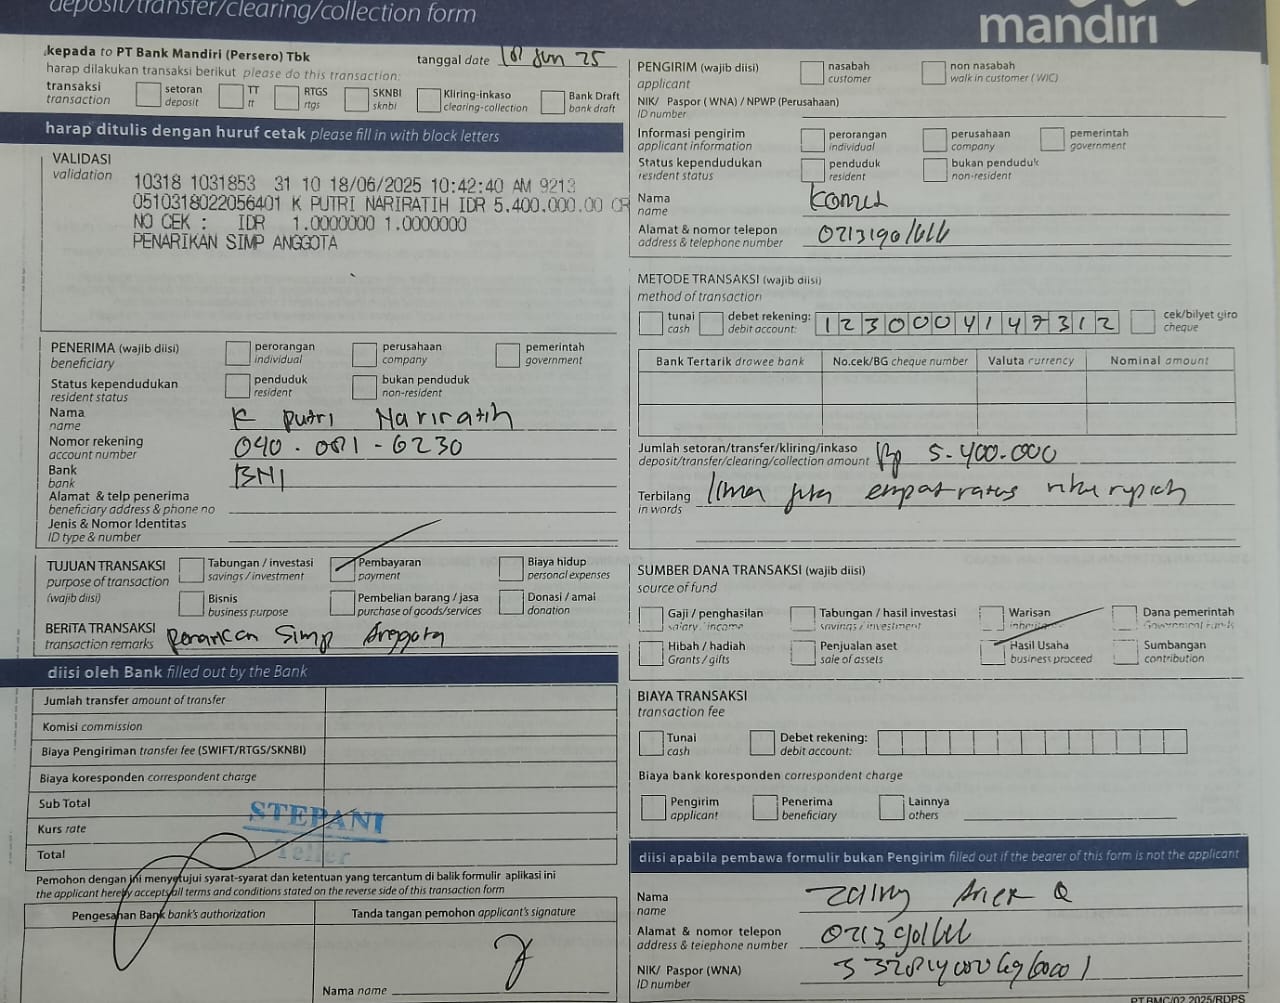 deposit/transfer/clearing/collection form
mandiri
kepada to PT Bank Mandiri (Persero) Tbk
tanggal date Jun 25
harap dilakukan transaksi berikut please do this transaction:
transaksi transaction
setoran deposit
TT tt
RTGS rtgs
SKNBI sknbi
Kliring-inkaso clearing-collection
Bank Draft bank draft
harap ditulis dengan huruf cetak please fill in with block letters
VALIDASI
validation
10318 1031853 31 10 18/06/2025 10:42:40 AM 9213
0510318022056401 K PUTRI NARIRATIH IDR 5,400,000.00 CR
NO CEK : IDR 1.0000000 1.0000000
PENARIKAN SIMP ANGGOTA
PENERIMA (wajib diisi)
beneficiary
perorangan individual
perusahaan company
pemerintah government
Status kependudukan
resident status
penduduk resident
bukan penduduk non-resident
Nama
name
K Putri Nariratih
Nomor rekening
account number
Bank
bank
BNI
Alamat & telp penerima
beneficiary address & phone no
Jenis & Nomor Identitas
ID type & number
TUJUAN TRANSAKSI
purpose of transaction
(wajib diisi)
Tabungan / investasi savings / investment
Pembayaran payment
Biaya hidup personal expenses
Bisnis business purpose
Pembelian barang / jasa purchase of goods/services
Donasi / amal donation
BERITA TRANSAKSI
transaction remarks
Penarikan Simp Anggota
diisi oleh Bank filled out by the Bank
Jumlah transfer amount of transfer
Komisi commission
Biaya Pengiriman transfer fee (SWIFT/RTGS/SKNBI)
Biaya koresponden correspondent charge
Sub Total
Kurs rate
Total
STEPANI
Teller
Pemohon dengan ini menyetujui syarat-syarat dan ketentuan yang tercantum di balik formulir aplikasi ini
the applicant hereby accepts all terms and conditions stated on the reverse side of this transaction form
Pengesahan Bank bank's authorization
Tanda tangan pemohon applicant's signature
Nama name
PENGIRIM (wajib diisi)
applicant
nasabah customer
non nasabah walk in customer (WIC)
NIK/ Paspor (WNA) / NPWP (Perusahaan)
ID number
Informasi pengirim
applicant information
perorangan individual
perusahaan company
pemerintah government
Status kependudukan
resident status
penduduk resident
bukan penduduk non-resident
Nama
name
Alamat & nomor telepon
address & telephone number
METODE TRANSAKSI (wajib diisi)
method of transaction
tunai cash
debet rekening: debit account:
1230004147312
cek/bilyet giro cheque
Bank Tertarik drawee bank
No.cek/BG cheque number
Valuta currency
Nominal amount
Jumlah setoran/transfer/kliring/inkaso
deposit/transfer/clearing/collection amount
Rp 5.400.000
Terbilang
in words
lima juta empat ratus ribu rupiah
SUMBER DANA TRANSAKSI (wajib diisi)
source of fund
Gaji / penghasilan salary / income
Tabungan / hasil investasi savings / investment
Warisan inheritance
Dana pemerintah Government Funds
Hibah / hadiah Grants / gifts
Penjualan aset sale of assets
Hasil Usaha business proceed
Sumbangan contribution
BIAYA TRANSAKSI
transaction fee
Tunai cash
Debet rekening: debit account:
Biaya bank koresponden correspondent charge
Pengirim applicant
Penerima beneficiary
Lainnya others
diisi apabila pembawa formulir bukan Pengirim filled out if the bearer of this form is not the applicant
Nama
name
Alamat & nomor telepon
address & telephone number
NIK/ Paspor (WNA)
ID number
PT.BMC/02.2025/RDPS